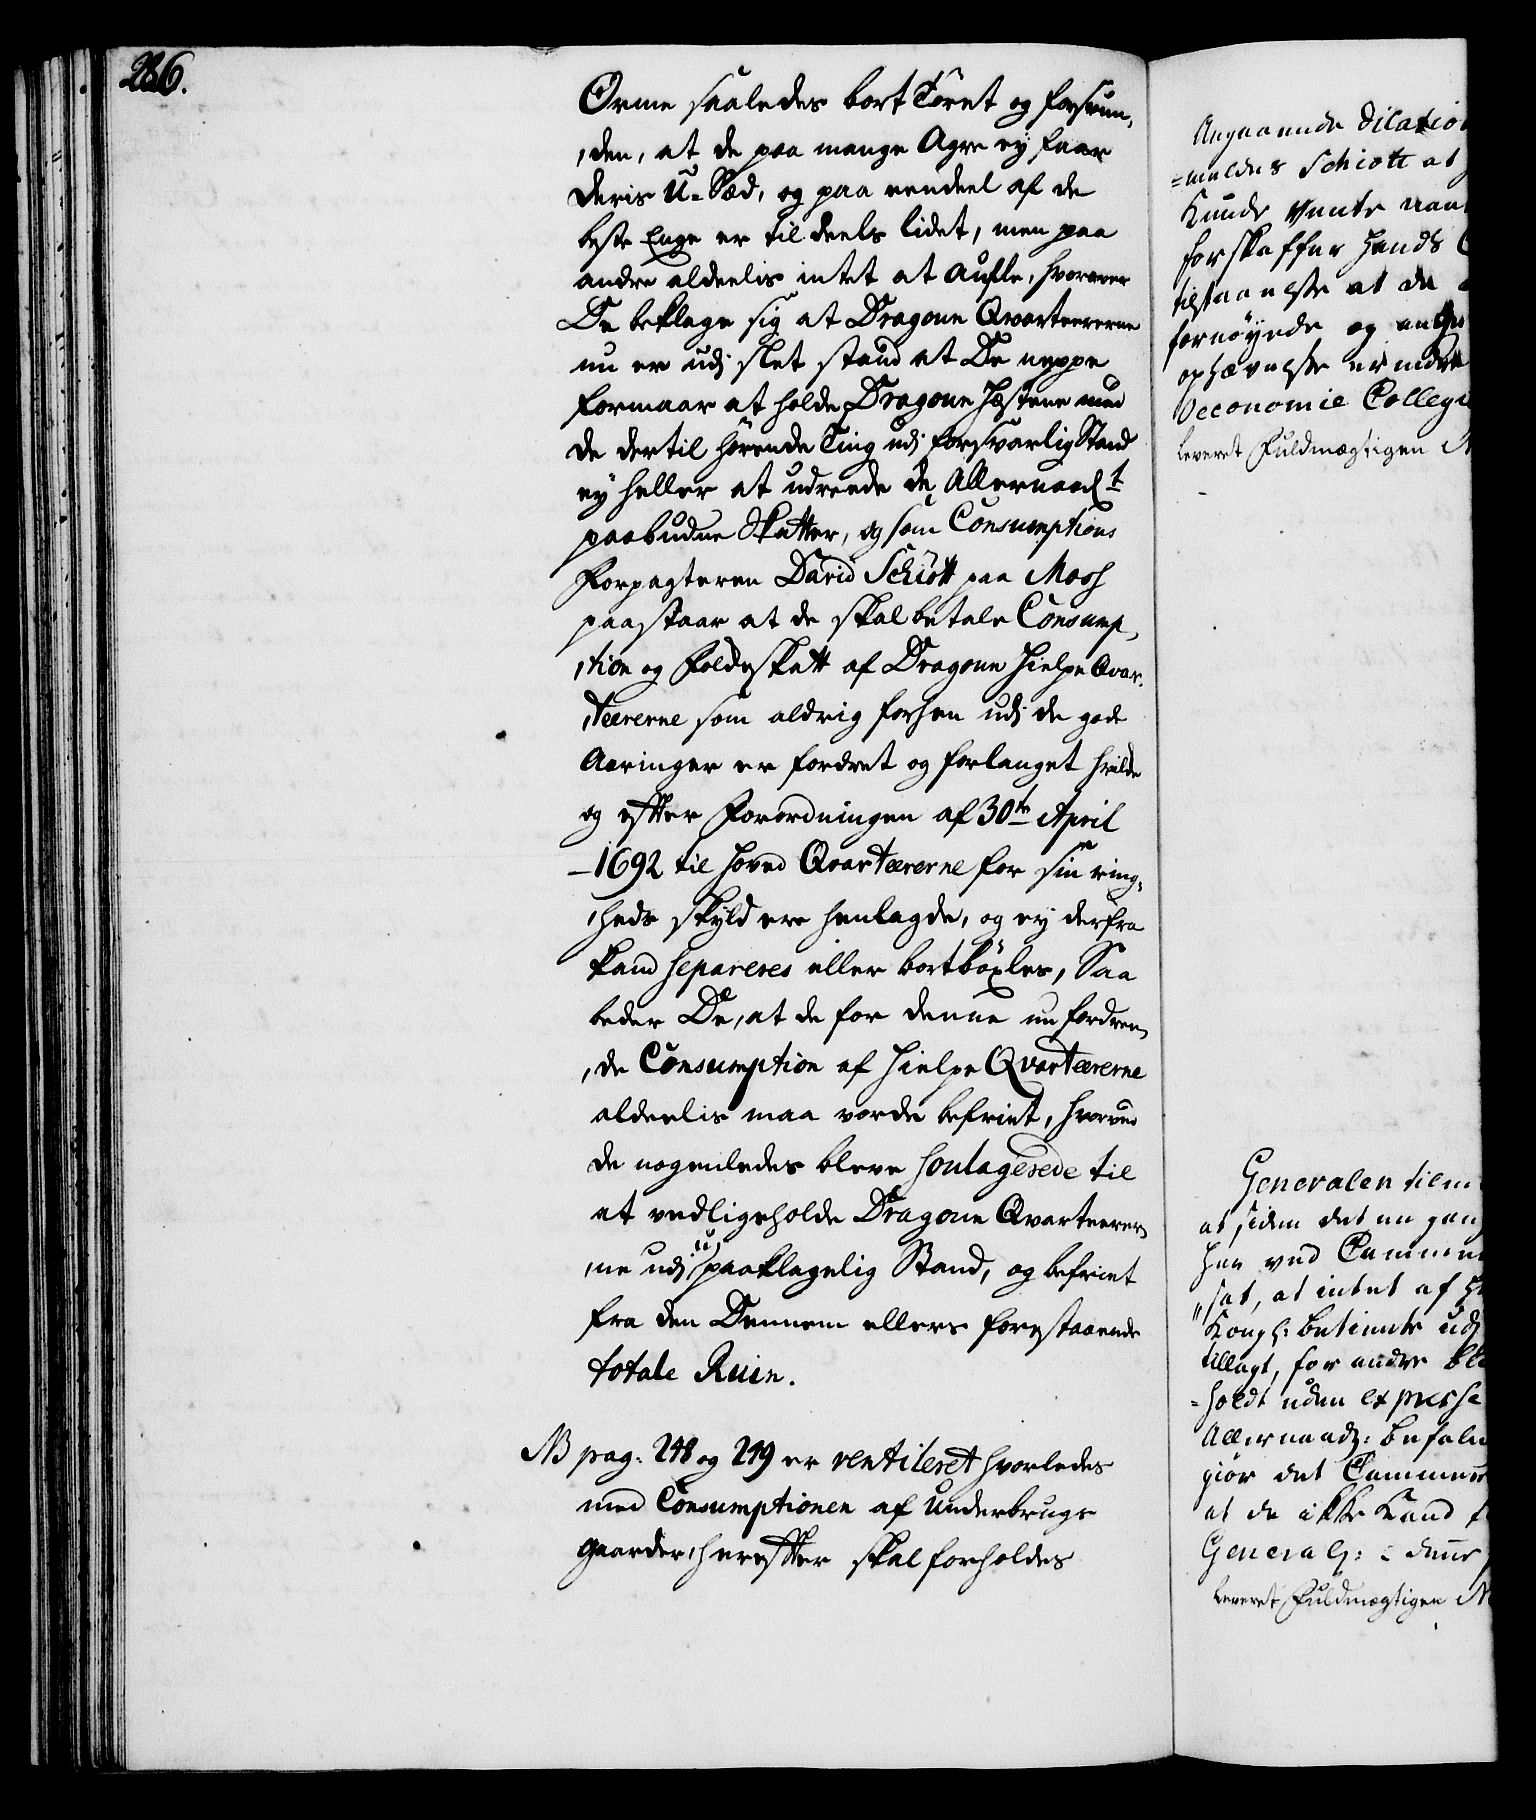 286.
Orme saaledes bort Töret og forsvun,
,den, at de paa mange Agre ey faar
deris U-Sæd, og paa eendeel af de
beste Enge er til deels lidet, men paa
andre aldeelis intet at aufle, hvorover
De beklage sig at Dragoun Qvarteererne
nu er udj slet stand at De neppe
formaar at holde Dragoun Hæstene med
de dertil hörende Ting udj forsvarlig Stand
ey heller at udreede de Allernaadst
paabudne Skatter, og som Consumptions
Forpagteren David Schiött paa Moss
paastaar at de skal betale Consump,
,tion og Foldeskatt af Dragoun Hielpe Qvar,
,teererne som aldrig forhen udj de gode
Aaringer er fordret og forlanget hvilke
og efter Forordningen af 30te April
1692 til Hoved Qvarteererne for sin ring,
,heds skyld ere henlagde, og ey derfra
kand separeres eller bortböxles, Saa
beder De, at de for denne nu fordren,
,de Consumption af Hielpe Qvarteererne
aldeelis maa vorde befriet, hvorved
de nogenledes bleve soulagerede til
at vedligeholde Dragoun Qvarteerer,
,ne udj upaaklagelig Stand, og befriet
fra den Dennem ellers forestaaende
totale Ruin.
NB pag: 248 og 249 er ventileret hvorledes
med Consumptionen af Underbrugs
Gaarder, herefter skal forholdes
Angaaende Dilation
=meldes Schiött at
Kunde vente
forskaffer hands
tilstaaelse at de
fornöyede og
ophævelse
Oeconomie Collegi
Leveret Fuldmægtigen
Generalen
at siden det en gang
her ved
sat, at intet af
Kongl: betiente udj
tillagt, for andre
=holdt uden expresse
Allernaadg: befal
giör det
at de ikke Kand
General:
Leveret Fuldmægtigen